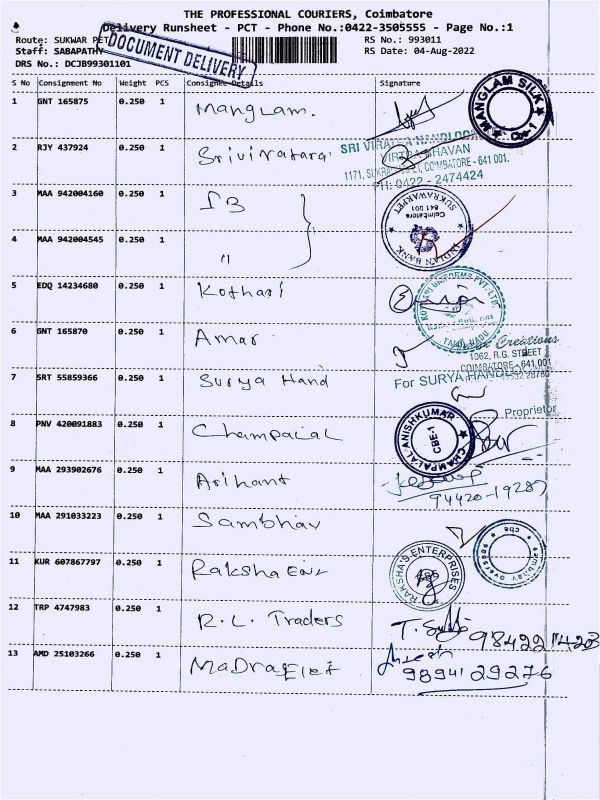 THE PROFESSIONAL COURIERS, Coimbatore
Delivery Runsheet - PCT - Phone No.:0422-3505555 - Page No.:1
Route: SUKWAR PET
RS No.: 993011
Staff: SABAPATHY
RS Date: 04-Aug-2022
DRS No.: DCJB99301101
DOCUMENT DELIVERY
S No Consignment No Weight PCS Consignee Details Signature
1 GNT 165875 0.250 1 Manglam.
MANGLAM SILK CBE-1
2 RJY 437924 0.250 1
SRI
BHAVAN
1171, COIMBATORE - 641 001.
PH: 0422 - 2474424
3 MAA 942004160 0.250 1 IB
INDIAN BANK SUKRAWARPET Coimbatore 641 001
4 MAA 942004545 0.250 1 "
5 EDQ 14234680 0.250 1 Kothari
KOTHARI UNIFORMS PVT. LTD. TAMIL NADU
6 GNT 165870 0.250 1 Amar
Creations
1362, R.G. STREET
COIMBATORE - 641 001
7 SRT 55859366 0.250 1 Surya Hand
For SURYA
Proprietor
8 PNV 420091883 0.250 1 Champalal
CHAMPALAL ANISHKUMAR CBE-1
9 MAA 293902676 0.250 1 Arihant
94420-19287
10 MAA 291033223 0.250 1 Sambhav
sambhav overseas cbe
11 KUR 607867797 0.250 1 Raksha Ent
RAKSHA'S ENTERPRISES
12 TRP 4747983 0.250 1 R.L. Traders
13 AMD 25103266 0.250 1 Madras Elet
9894129276